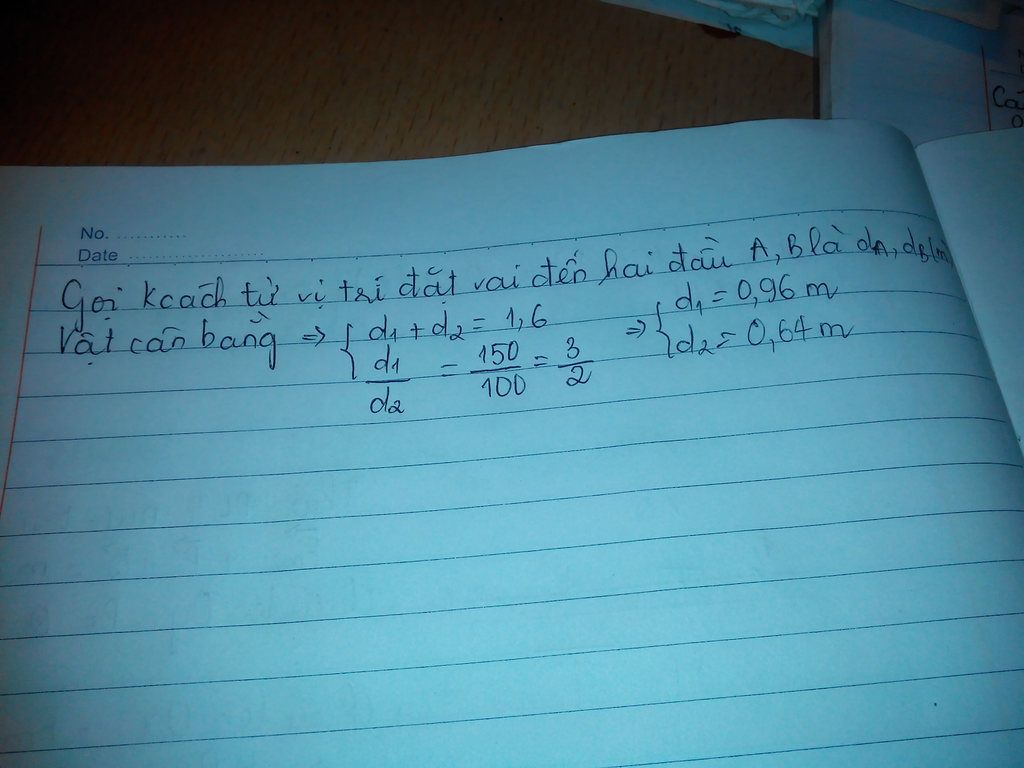 No. ...........
Date ........................
Gọi kcách từ vị trí đặt vai đến hai đầu A, B là dA, dB (m)
Vật cân bằng => { d1 + d2 = 1,6 => { d1 = 0,96 m
d1/d2 = 150/100 = 3/2 d2 = 0,64 m